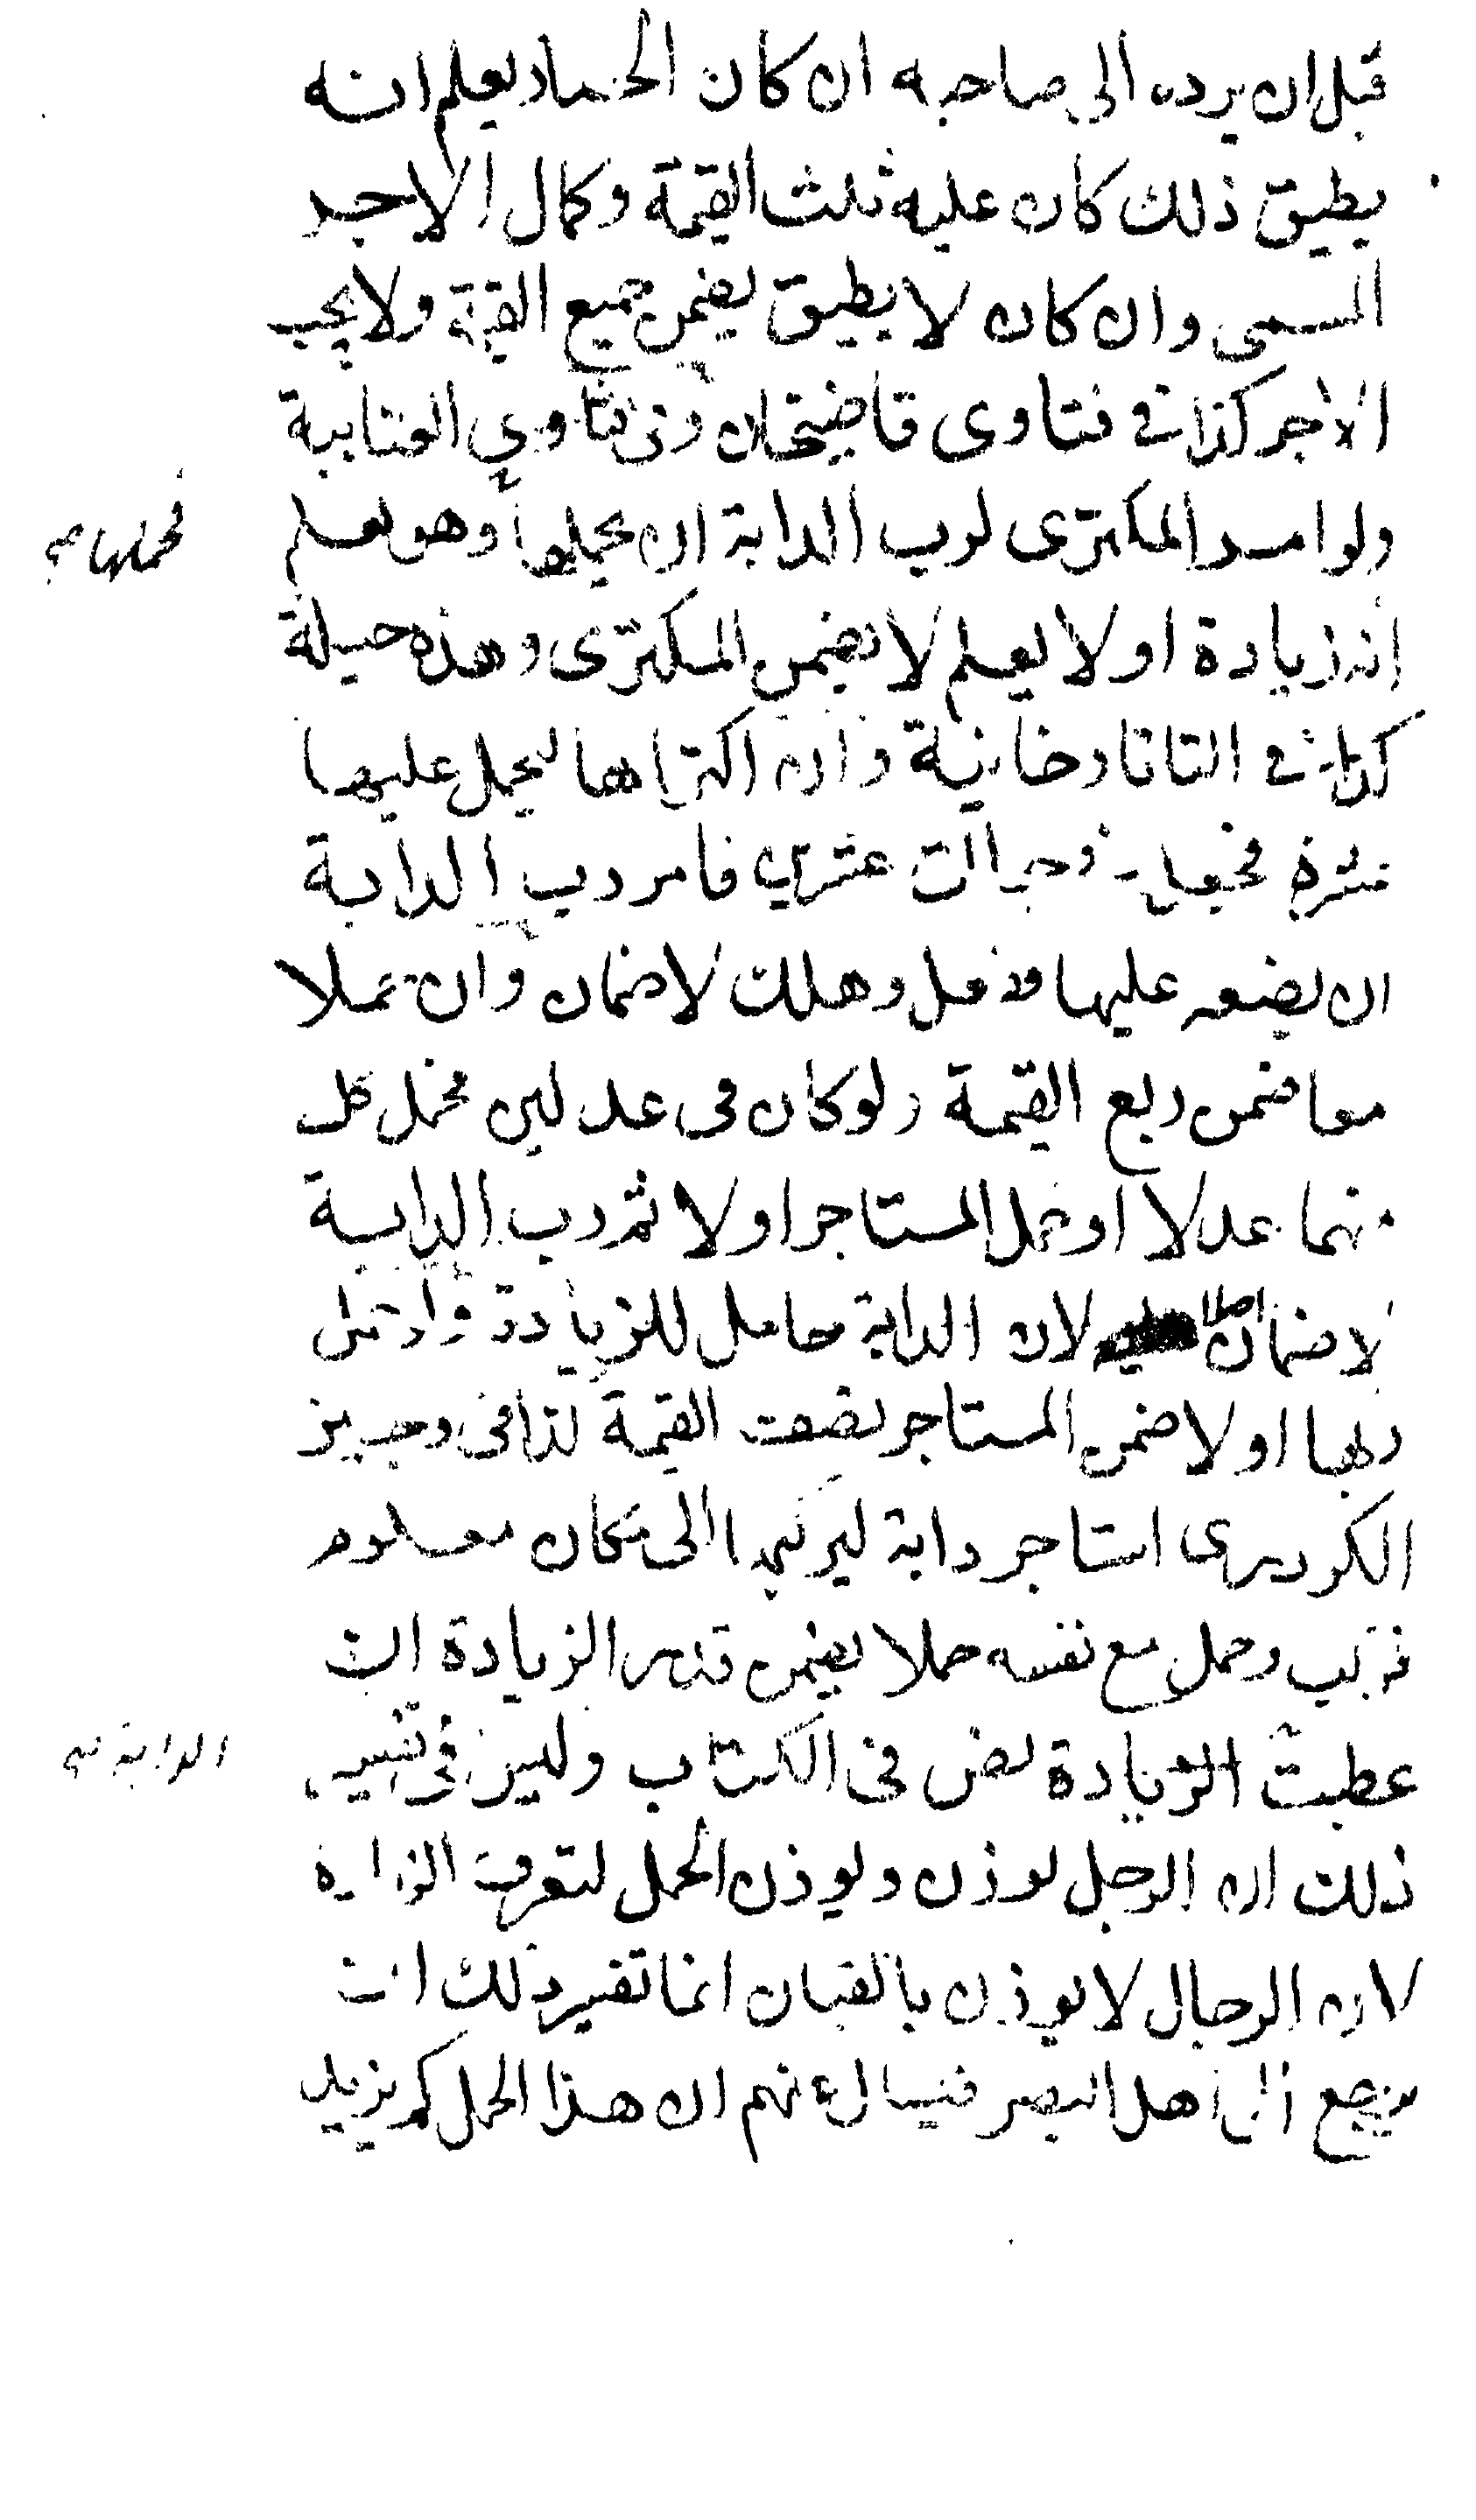 قبل ان يرده الى صاحبه ان كان الحمار يعلم انه
يطيق ذلك كان عليه ثلث القيمة وكمال الاجر
المسمى وان كان لا يطيق يضمن جميع القيمة ولا يجب
الاجر كذا في فتاوى قاضيخان وفي فتاوي العتابية
ولو امر المكترى لرب الدابة ان يحملها وهو يعلم
فحملها صح
انه زيادة او لا يعلم لا يضمن المكترى وهذه حيلة
كذا في التاتارخانية وان اكتراها ليحمل عليها
عشرة فجعل في جوالق عشرين فامر رب الدابة
ان يضعه عليها ففعل وهلك لا ضمان وان حملا
معا ضمن ربع القيمة ولو كان فى عدلين فحمل كل
منهما عدلا او حمل المستاجر اولا ثم رب الدابة
لا ضمان اصلا لان الدابة حامل للزيادة وان حمل
ربها اولا ضمن المستاجر نصف القيمة كذا في وجيز
الكردرى استاجر دابة ليركبها الى مكان معلوم
فركب وحمل مع نفسه حملا يضمن قدر الزيادة ان
عطبت الزيادة نص فى الكتاب وليس فى تفسير
الدابة صح
ذلك ان الرجل يوزن ويوزن الحمل لتعرف الزيادة
لان الرجال لا يوزن بالقبان انما تفسير ذلك ان
يرجع الى اهل البصر فيسال عنهم ان هذا الحمل كم يزيد